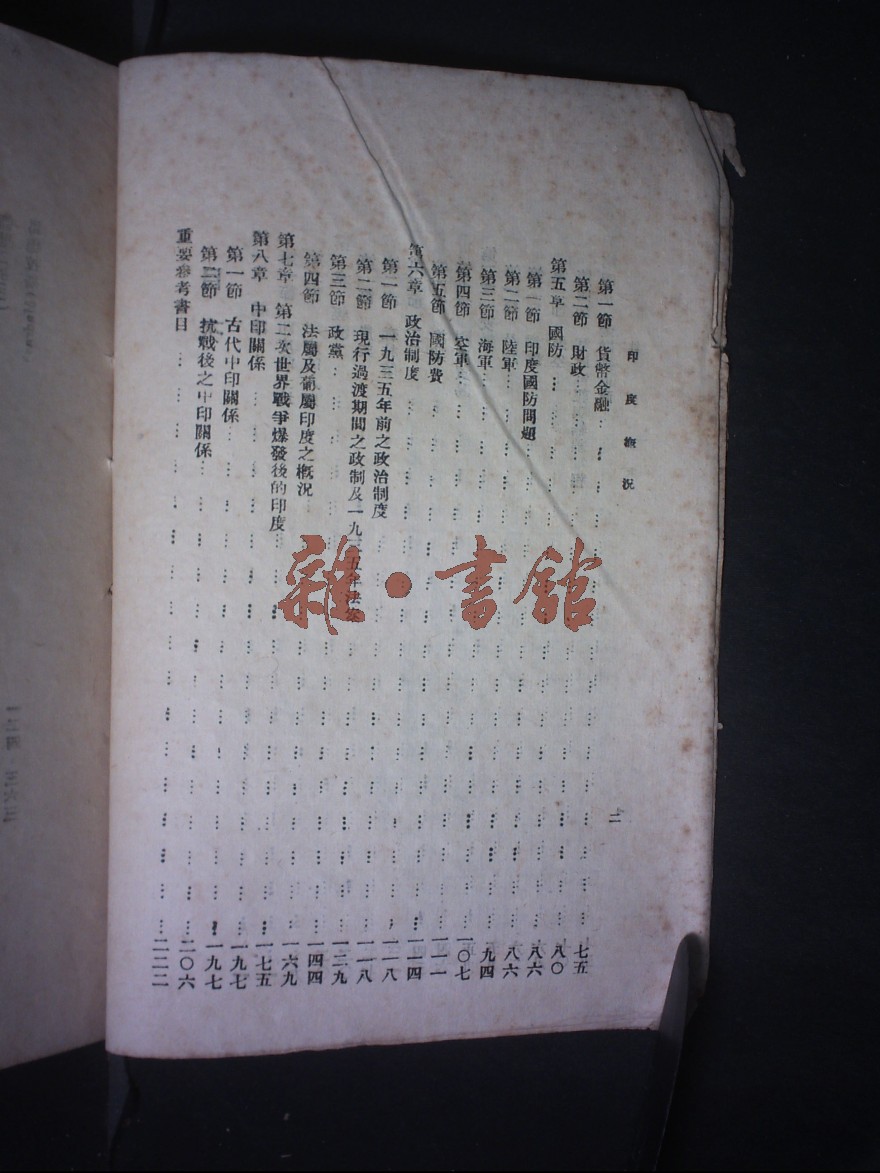 印度概況
第一節 貨幣金融……七五
第二節 財政……八〇
第五章 國防……八六
第一節 印度國防問題……八六
第二節 陸軍……九四
第三節 海軍……一〇七
第四節 空軍……一一一
第五節 國防費……一一四
第六章 政治制度……一一八
第一節 一九三五年前之政治制度……一一八
第二節 現行過渡期間之政制及一九三五年法案……一二九
第三節 政黨……一四四
第四節 法屬及葡屬印度之概況……一六九
第七章 第二次世界戰爭爆發後的印度……一七五
第八章 中印關係……一九七
第一節 古代中印關係……一九七
第二節 抗戰後之中印關係……二〇六
重要參考書目……二二二
雜·書館